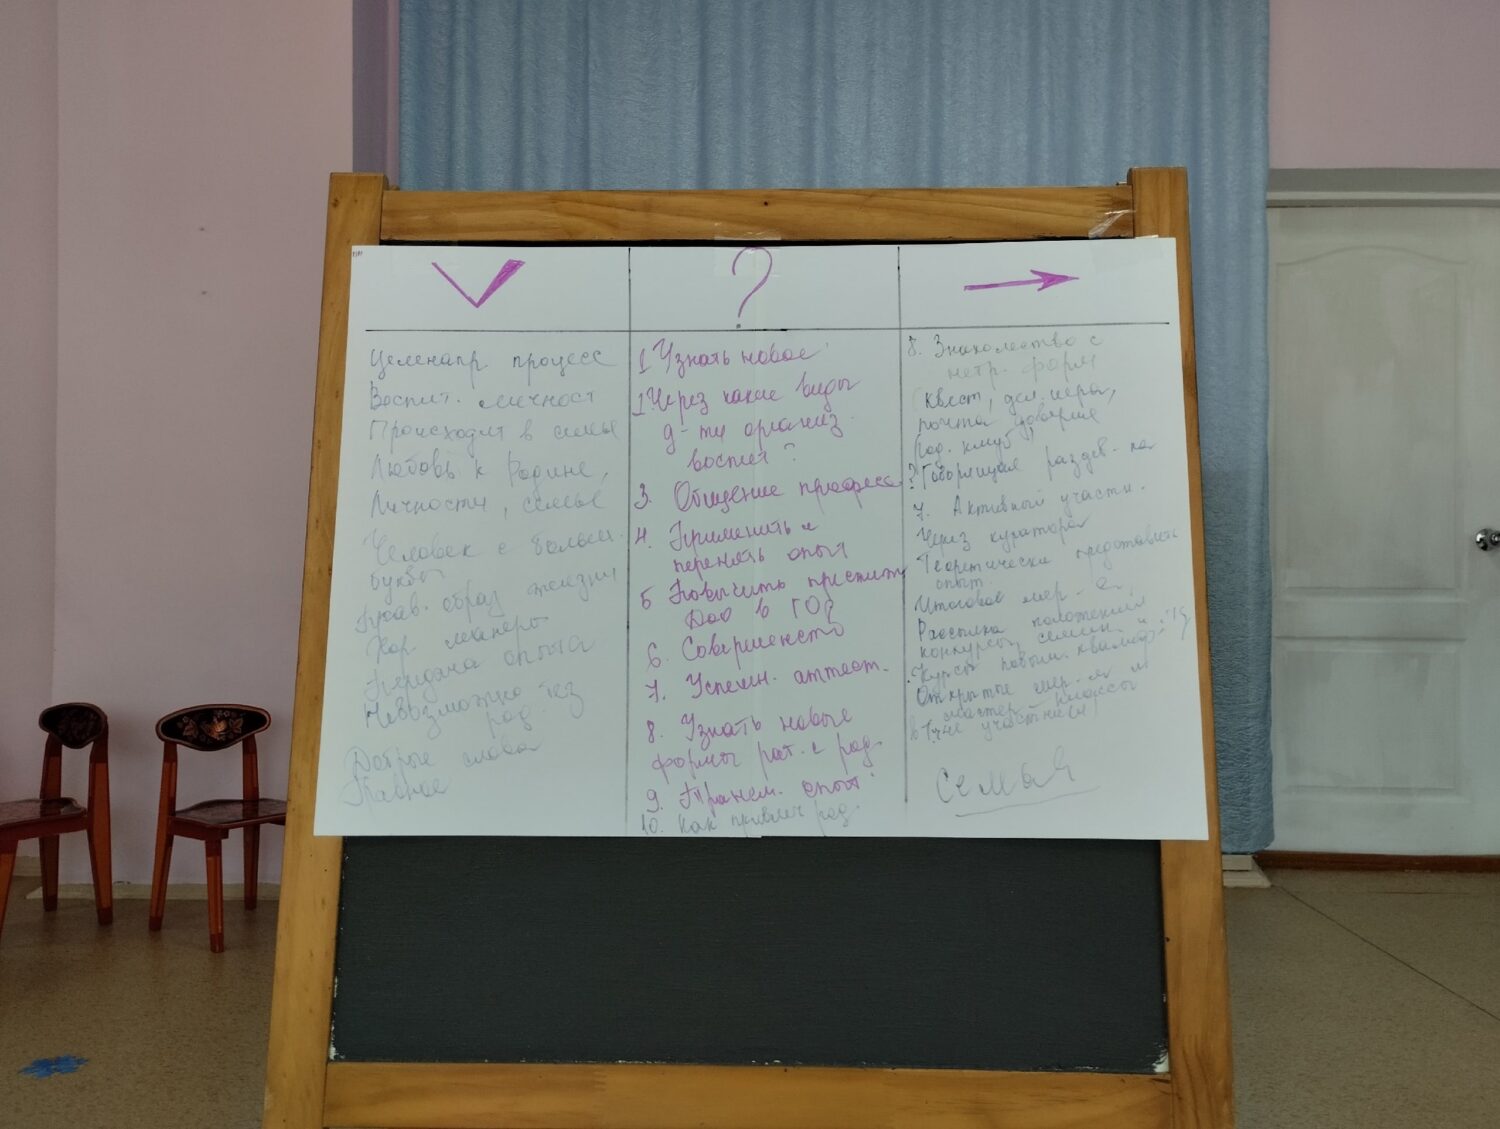 ?
Целенапр. процесс
Воспит. личност
Происходит в семье
Любовь к Родине,
Личности, семье
Человек с больш.
буквы
образ жизни
Хор. манеры
Передача опыта
Невозможно без
род.
Добрые слова
Главное
1 Узнать новое
1. Через какие виды
д-ти организ.
воспит?
3. Общение професс
4. Применить и
перенять опыт
5 Повысить престиж
ДОО в ГОД
6. Совершенств
7. Успешн. аттест.
8. Узнать новые
формы рат. с род.
9. опыт
10. Как привлеч род.
8. Знакомество с
нетр. форм
(Квест, дел. игры,
почта доверие
Род. клуб
? Говорящая раздев-ка
7. Активный участн.
Через куратора
Теоретически представить
опыт.
Итоговое мер-е
Рассылка положений
конкурсы, семин.
Курсы повыш. квалиф.
Открытые мер-я и
мастер-классы
участнки)
Семья